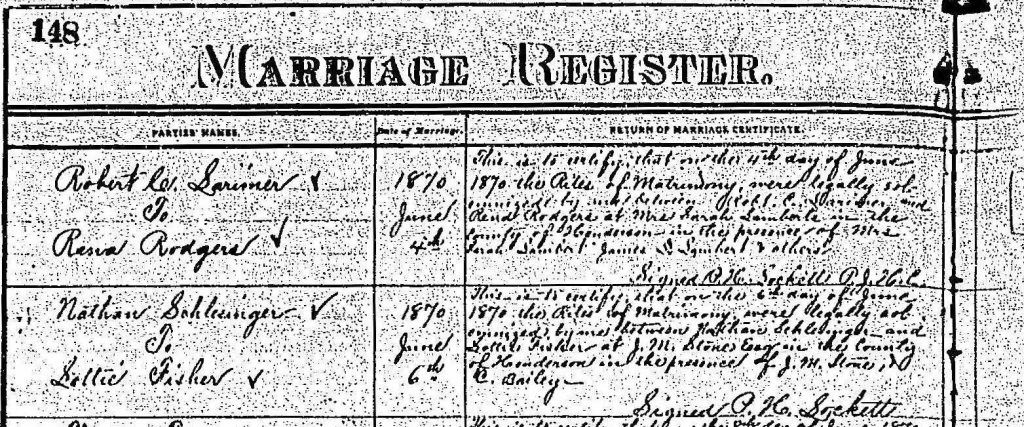 148
MARRIAGE REGISTER.
PARTIES' NAMES. Date of Marriage. RETURN OF MARRIAGE CERTIFICATE.
Robert C. Larimer
To
Rena Rodgers
1870
June
4th
This is to certify, that on the 4th day of June
1870 the Rites of Matrimony, were legally sol-
emnized by me between Robt. C. Larimer and
Rena Rodgers at Mrs Sarah Lamberts in the
County of Henderson in the presence of Mrs
Sarah Lambert James Lambert & others
Signed P. H. Lockett P.J.H.C.
Nathan Schlesinger
To
Lottie Fisher
1870
June
6th
This is to certify, that on the 6th day of June
1870 the Rites of Matrimony were legally sol-
emnized by me between Nathan Schlesinger and
Lottie Fisher at J. M. Stones Esq in the County
of Henderson in the presence of J. M. Stone, &
C. Bailey
Signed P. H. Lockett